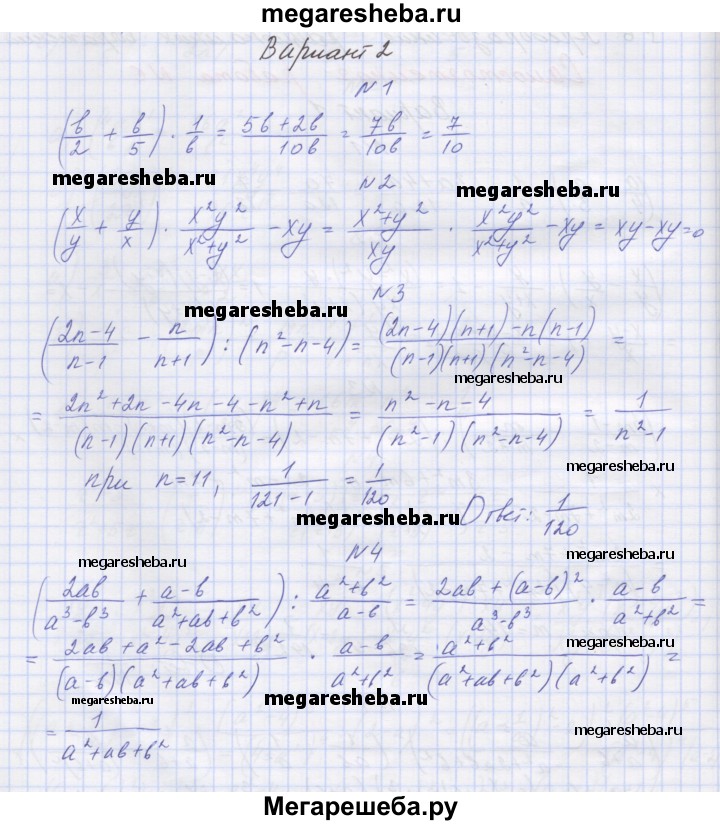 megaresheba.ru
Вариант 2
N1
(b/2 + b/5) · 1/b = (5b+2b)/10b = 7b/10b = 7/10
megaresheba.ru
N2
megaresheba.ru
(x/y + y/x) · x²y²/(x²+y²) - xy = (x²+y²)/xy · x²y²/(x²+y²) - xy = xy-xy=0
N3
megaresheba.ru
((2n-4)/(n-1) - n/(n+1)) : (n²-n-4) = ((2n-4)(n+1)-n(n-1))/((n-1)(n+1)(n²-n-4)) =
megaresheba.ru
= (2n²+2n-4n-4-n²+n)/((n-1)(n+1)(n²-n-4)) = (n²-n-4)/((n²-1)(n²-n-4)) = 1/(n²-1)
megaresheba.ru
при n=11, 1/(121-1) = 1/120
megaresheba.ru
Ответ: 1/120
N4
megaresheba.ru
megaresheba.ru
(2ab/(a³-b³) + (a-b)/(a²+ab+b²)) : (a²+b²)/(a-b) = (2ab+(a-b)²)/(a³-b³) · (a-b)/(a²+b²) =
megaresheba.ru
= (2ab+a²-2ab+b²)/((a-b)(a²+ab+b²)) · (a-b)/(a²+b²) = (a²+b²)/((a²+ab+b²)(a²+b²)) =
megaresheba.ru
megaresheba.ru
= 1/(a²+ab+b²)
megaresheba.ru
Мегарешеба.ру